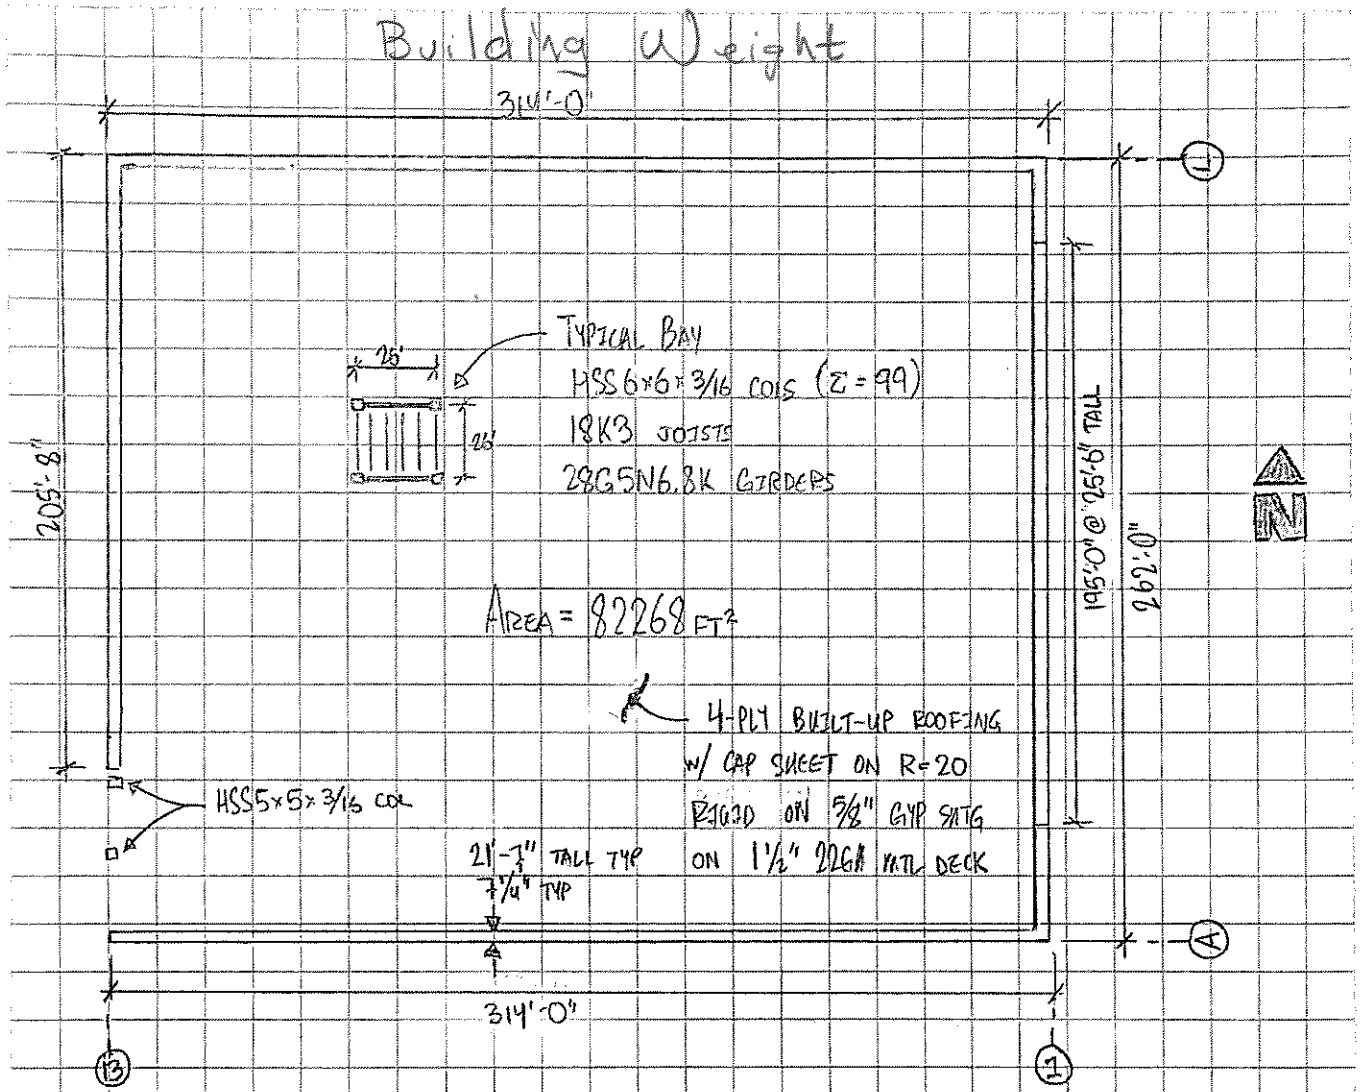 Building Weight
314'-0"
TYPICAL BAY
26'
HSS6x6x3/16 COLS (Σ=99)
18K3 JOISTS
26'
28G5N6.8K GIRDERS
205'-8"
195'-0" @ 25'-6" TALL
262'-0"
N
AREA = 82268 FT²
4-PLY BUILT-UP ROOFING
W/ CAP SHEET ON R=20
RIGID ON 5/8" GYP SHTG
ON 1 1/2" 22GA MTL DECK
HSS5x5x3/16 COL
21'-7" TALL TYP
7 1/4" TYP
A
314'-0"
13
1